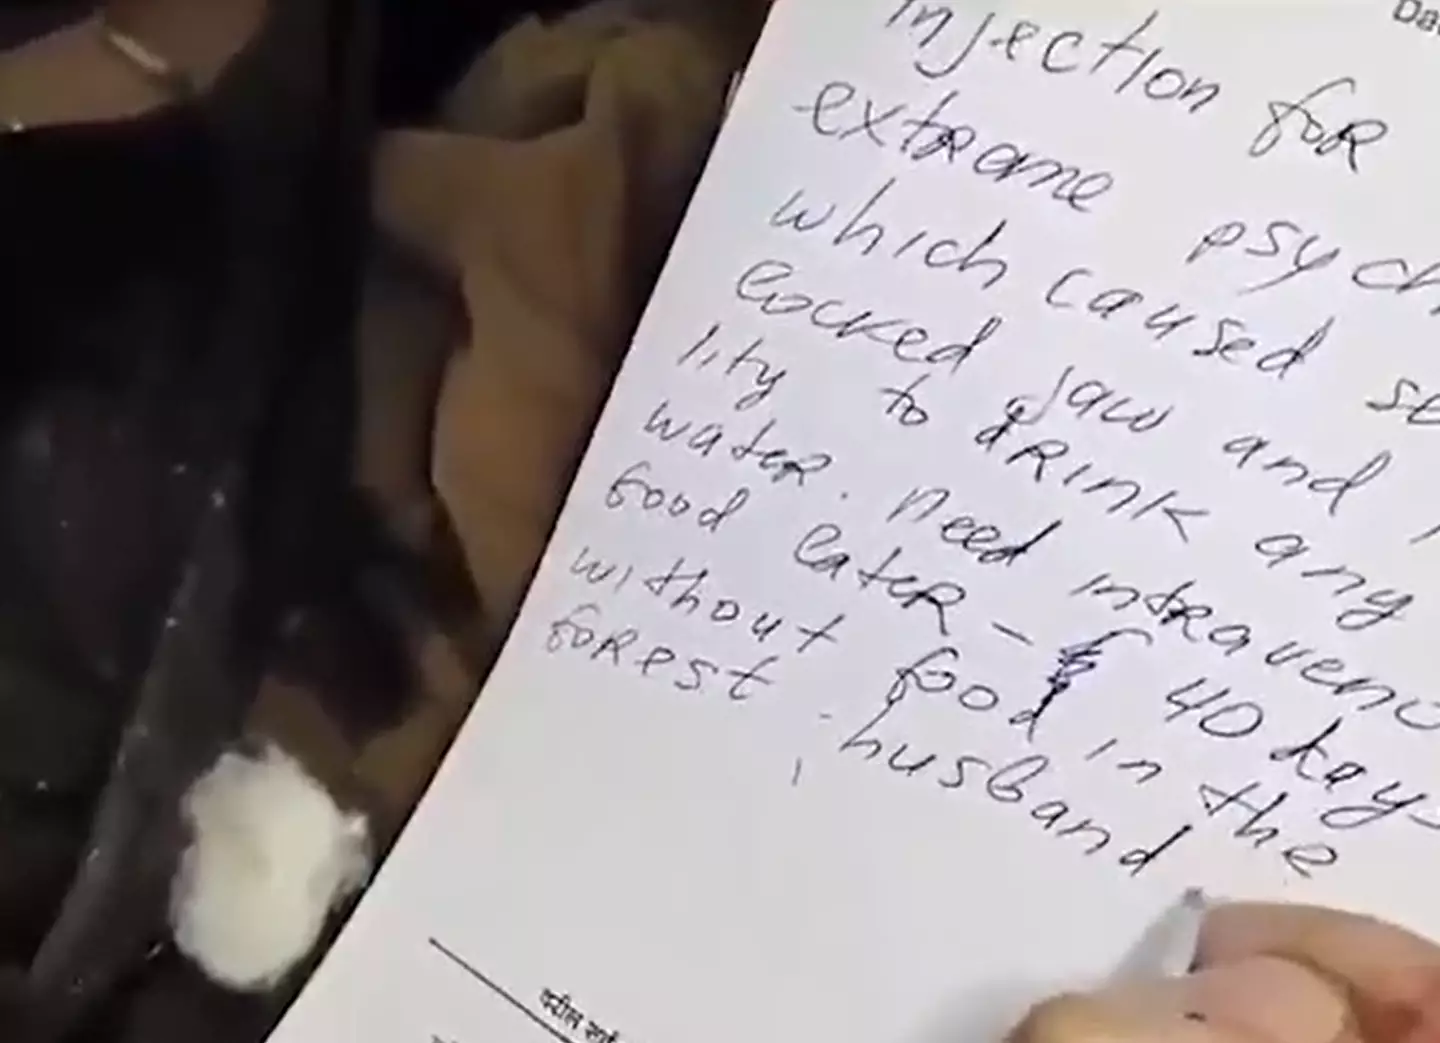 Da
injection for
extreme psych
which caused se
locked jaw and
lity to drink any
water. need intraveno
food eater - 40 kays
without food in the
forest. husband